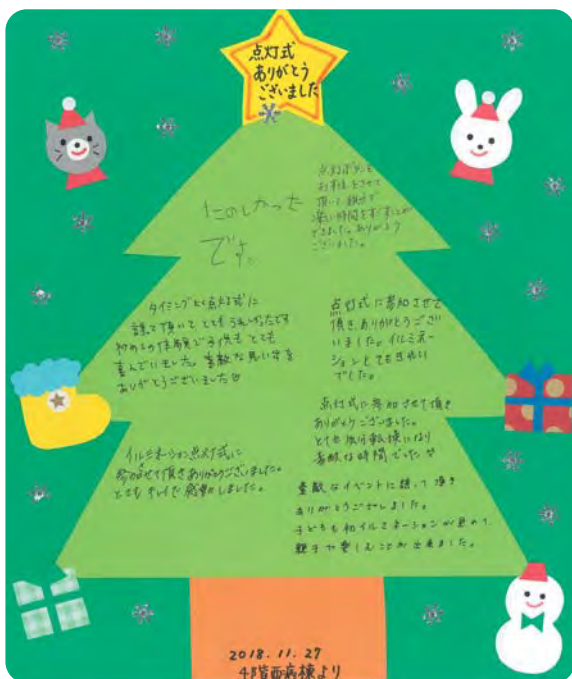 点灯式
ありがとう
ございました
たのしかった
です。
点灯ボタンを
お手伝いをさせて
頂いて親子で
楽しい時間をすごすことが
できました。ありがとう
ございました。
タイミングよく点灯式に
誘って頂いて とてもうれしかったです
初めての体験で子供も とても
喜んでいました。素敵な思い出を
ありがとうございました
点灯式に参加させて
頂きありがとうござい
ました。イルミネー
ションとてもきれい
でした。
点灯式に参加させて頂き
ありがとうございました。
とても気分転換になり
素敵な時間でした
イルミネーション点灯式に
参加させて頂きありがとうございました。
とてもキレイで感動しました。
素敵なイベントに誘って頂き
ありがとうございました。
子どもも初イルミネーションが見れて、
親子で楽しむことが出来ました。
2018.11.27
4階西病棟より